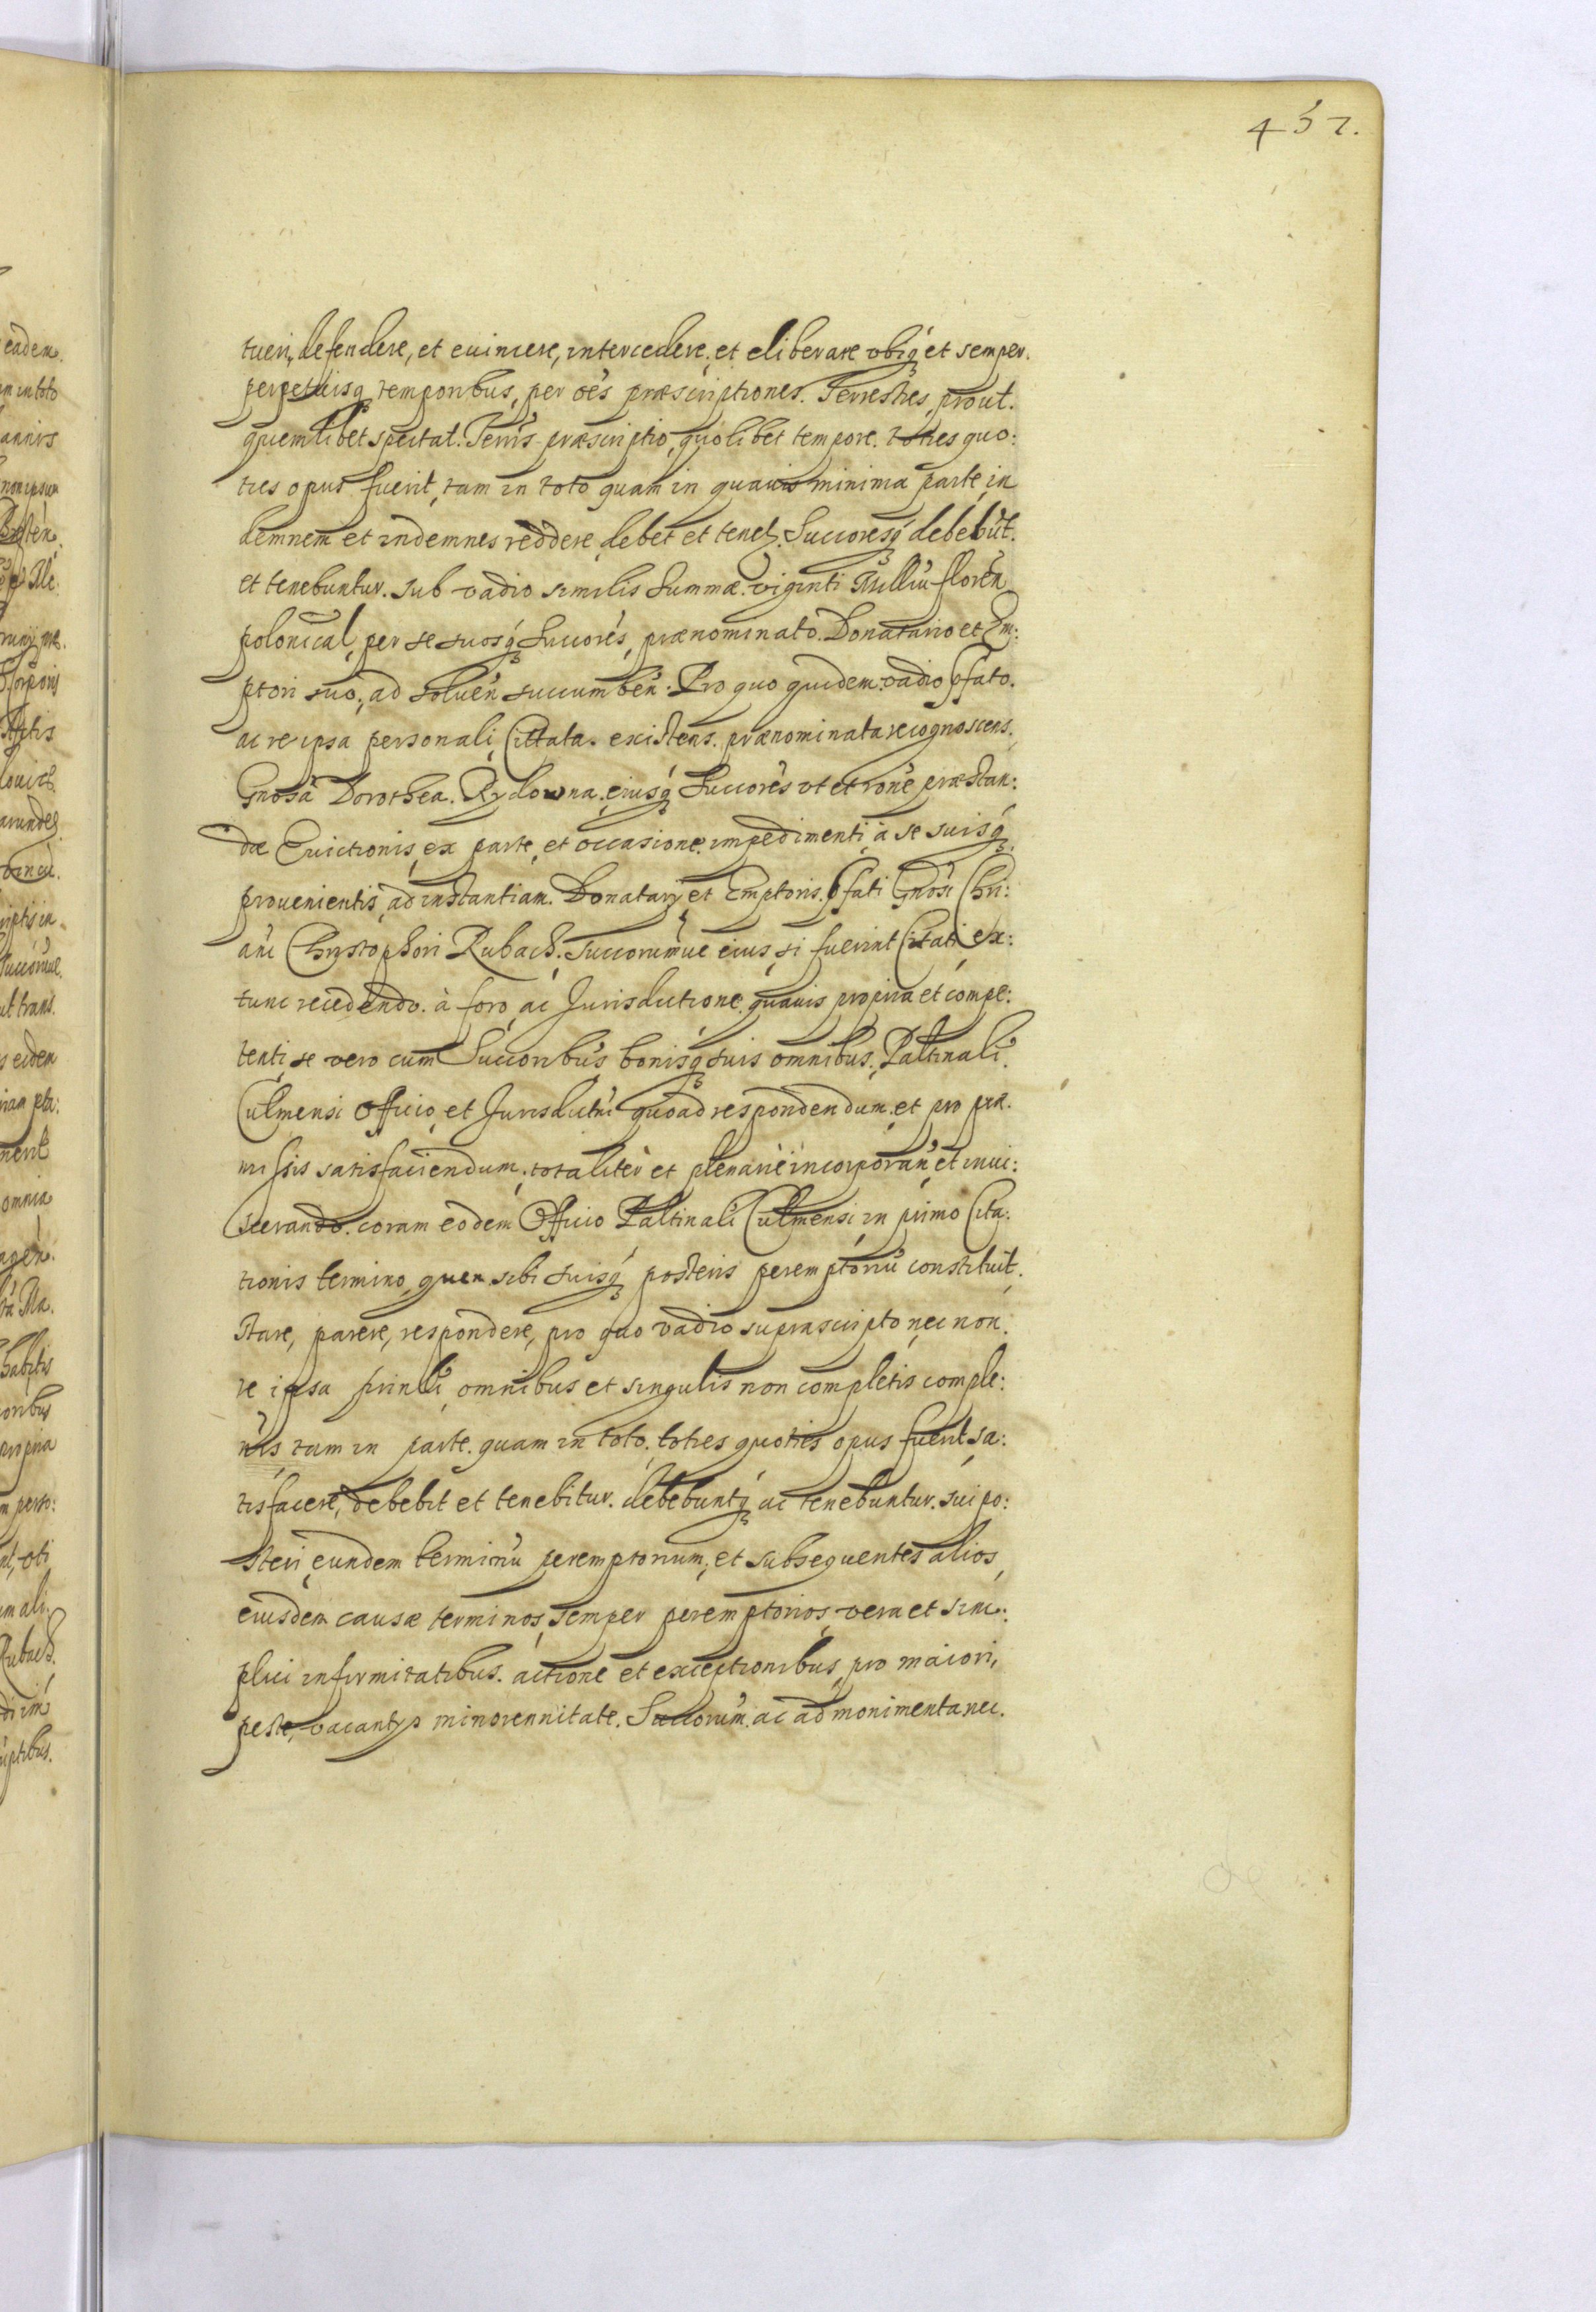 452.
tueri, defendere, et euincere, intercedere, et eliberare vbiq et semper.
perpetuisq temporibus, per oẽs præscriptiones. Terrestres, prout.
quemlibet spectat. Terris præscriptio, quolibet tempore. toties quo:
ties opus fuerit, tam in toto quam in quauis minima parte, in
demnem et indemnes reddere debet et tenet. Succoresq debebũt.
et tenebuntur. sub vadio similis Summæ. viginti Milliũ floren
polonical, per se suosq Succorẽs, prænominato. Donatario et Em:
ptori suo, ad soluen succumben: Pro quo quidem vadio pfato.
ac re ipsa personali, Cittata. existens. prænominata recognoscens.
Gnosa Dorothea. Rydowna. eiusq Succorẽs vt et rone præstan:
dæ Euictionis, ex parte, et occasione. impedimenti, à se suisq.
prouenientis, ad instantiam. Donatarij et Emptoris. pfati Gnosi Chri:
ani Christophori Rubach. Succorumue eius, si fuerint Citati, ex:
tunc recedendo. à foro, ac Jurisdictione. quauis propria et compe:
tenti, se vero cum Succoribus bonisq suis omnibus. Paltinali
Culmensi Officio, et Jurisdictni quoad respondendum. et pro præ.
missis satisfaciendum, totaliter et plenarie incorporan, et inui:
scerando. coram eodem Officio Paltinali Culmensi, in primo Cita:
tionis termino, quem sibi suisq posteris peremptoriũ constituit.
stare, parere, respondere, pro quo vadio suprascripto, nec non.
re ipsa prinli, omnibus et singulis non completis comple:
tam in parte. quam in toto. toties quoties opus fuerit, sa:
tisfacere, debebit et tenebitur. debebuntq ac tenebuntur. sui po:
steri, eundem terminũ peremptorium, et subsequentes alios,
eiusdem causæ terminos, semper peremptorios, vera et sim:
plici infirmitatibus. actione et exceptionibus, pro maiori,
peste, minorennitate. Succorum. ac ad monimenta nec.